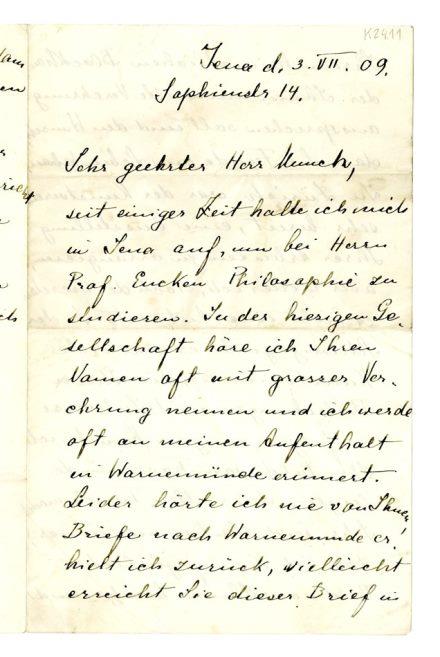 K2411
Jena d. 3. VII. 09.
Sophienstr 14.
Sehr geehrter Herr Munch,
seit einiger Zeit halte ich mich
in Jena auf, um bei Herrn
Prof. Eucken Philosophie zu
studieren. In der hiesigen Ge-
sellschaft höre ich Ihren
Namen oft mit grosser Ver-
ehrung nennen und ich werde
oft an meinen Aufenthalt
in Warnemünde erinnert.
Leider hörte ich nie von Ihnen,
Briefe nach Warnemünde er
hielt ich zurück, vielleicht
erreicht Sie dieser Brief in